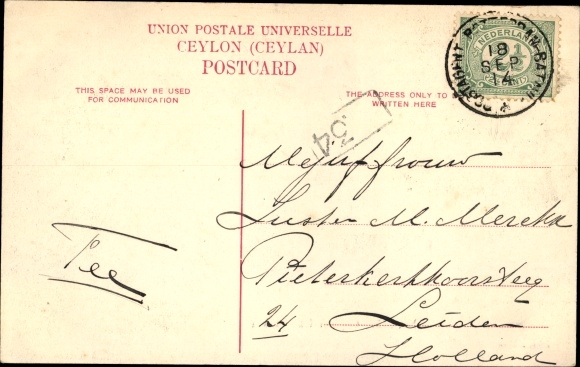 UNION POSTALE UNIVERSELLE
CEYLON (CEYLAN)
POSTCARD
THIS SPACE MAY BE USED
FOR COMMUNICATION
THE ADDRESS ONLY TO
WRITTEN HERE
NEDERLAND
POSTAGENT ROTTERDAM-BATAVIA
18
SEP
14
34
Mejuffrouw
Zuster M. Merckx
Pieterskerkkoorsteeg
24 Leiden
Holland
Tee